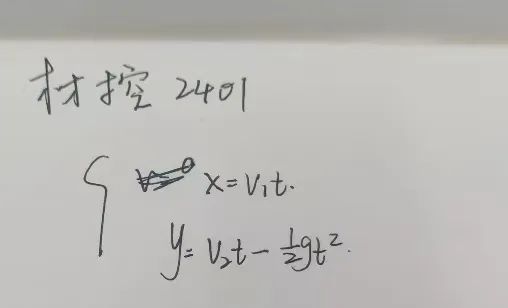 材控 2401
x=v₁t.
y=v₂t-½gt².